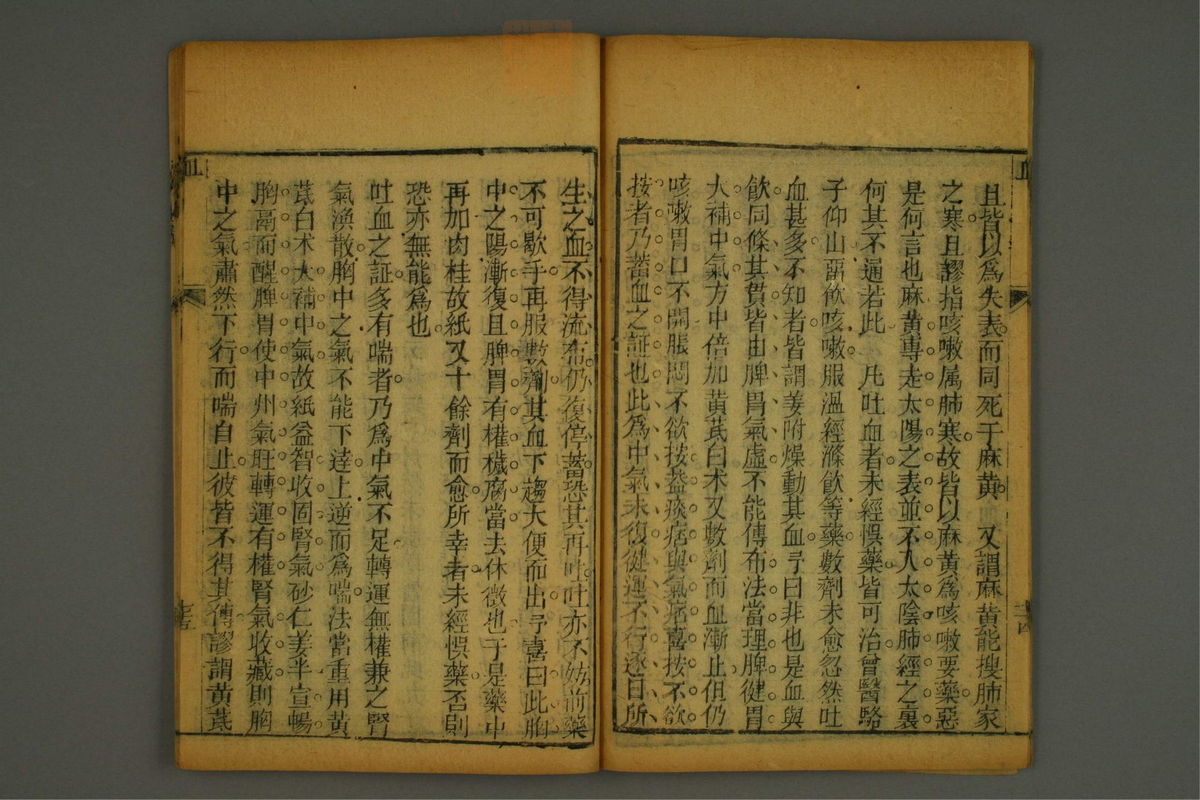 且皆以爲失表而同死于麻黄 又謂麻黄能搜肺家
之寒且謬指咳嗽属肺寒故皆以麻黄爲咳嗽要藥惡
是何言也麻黄專走太陽之表並不入太陰肺經之裏
何其不通若此 凡吐血者未經悞藥皆可治曾醫駱
子仰山畱飲咳嗽服溫經滌飲等藥數劑未愈忽然吐
血甚多不知者皆謂姜附燥動其血予曰非也是血與
飲同條其貫皆由脾胃氣虛不能傳布法當理脾健胃
大補中氣方中倍加黄芪白术又數劑而血漸止但仍
咳嗽胃口不開脹悶不欲按盖痰痞與氣痞喜按不欲
按者乃蓄血之証也此爲中氣未復健運不行逐日所
生之血不得流布仍復停蓄恐其再吐吐亦不妨前藥
不可歇手再服數劑其血下趨大便而出予喜曰此胸
中之陽漸復且脾胃有權穢腐當去休徵也于是藥中
再加肉桂故紙又十餘劑而愈所幸者未經悞藥否則
恐亦無能爲也
吐血之証多有喘者乃爲中氣不足轉運無權兼之腎
氣渙散胸中之氣不能下逹上逆而爲喘法當重用黄
芪白术大補中氣故紙益智收固腎氣砂仁姜半宣暢
胸膈而醒脾胃使中州氣旺轉運有權腎氣收藏則胸
中之氣肅然下行而喘自止彼皆不得其傳謬謂黄芪